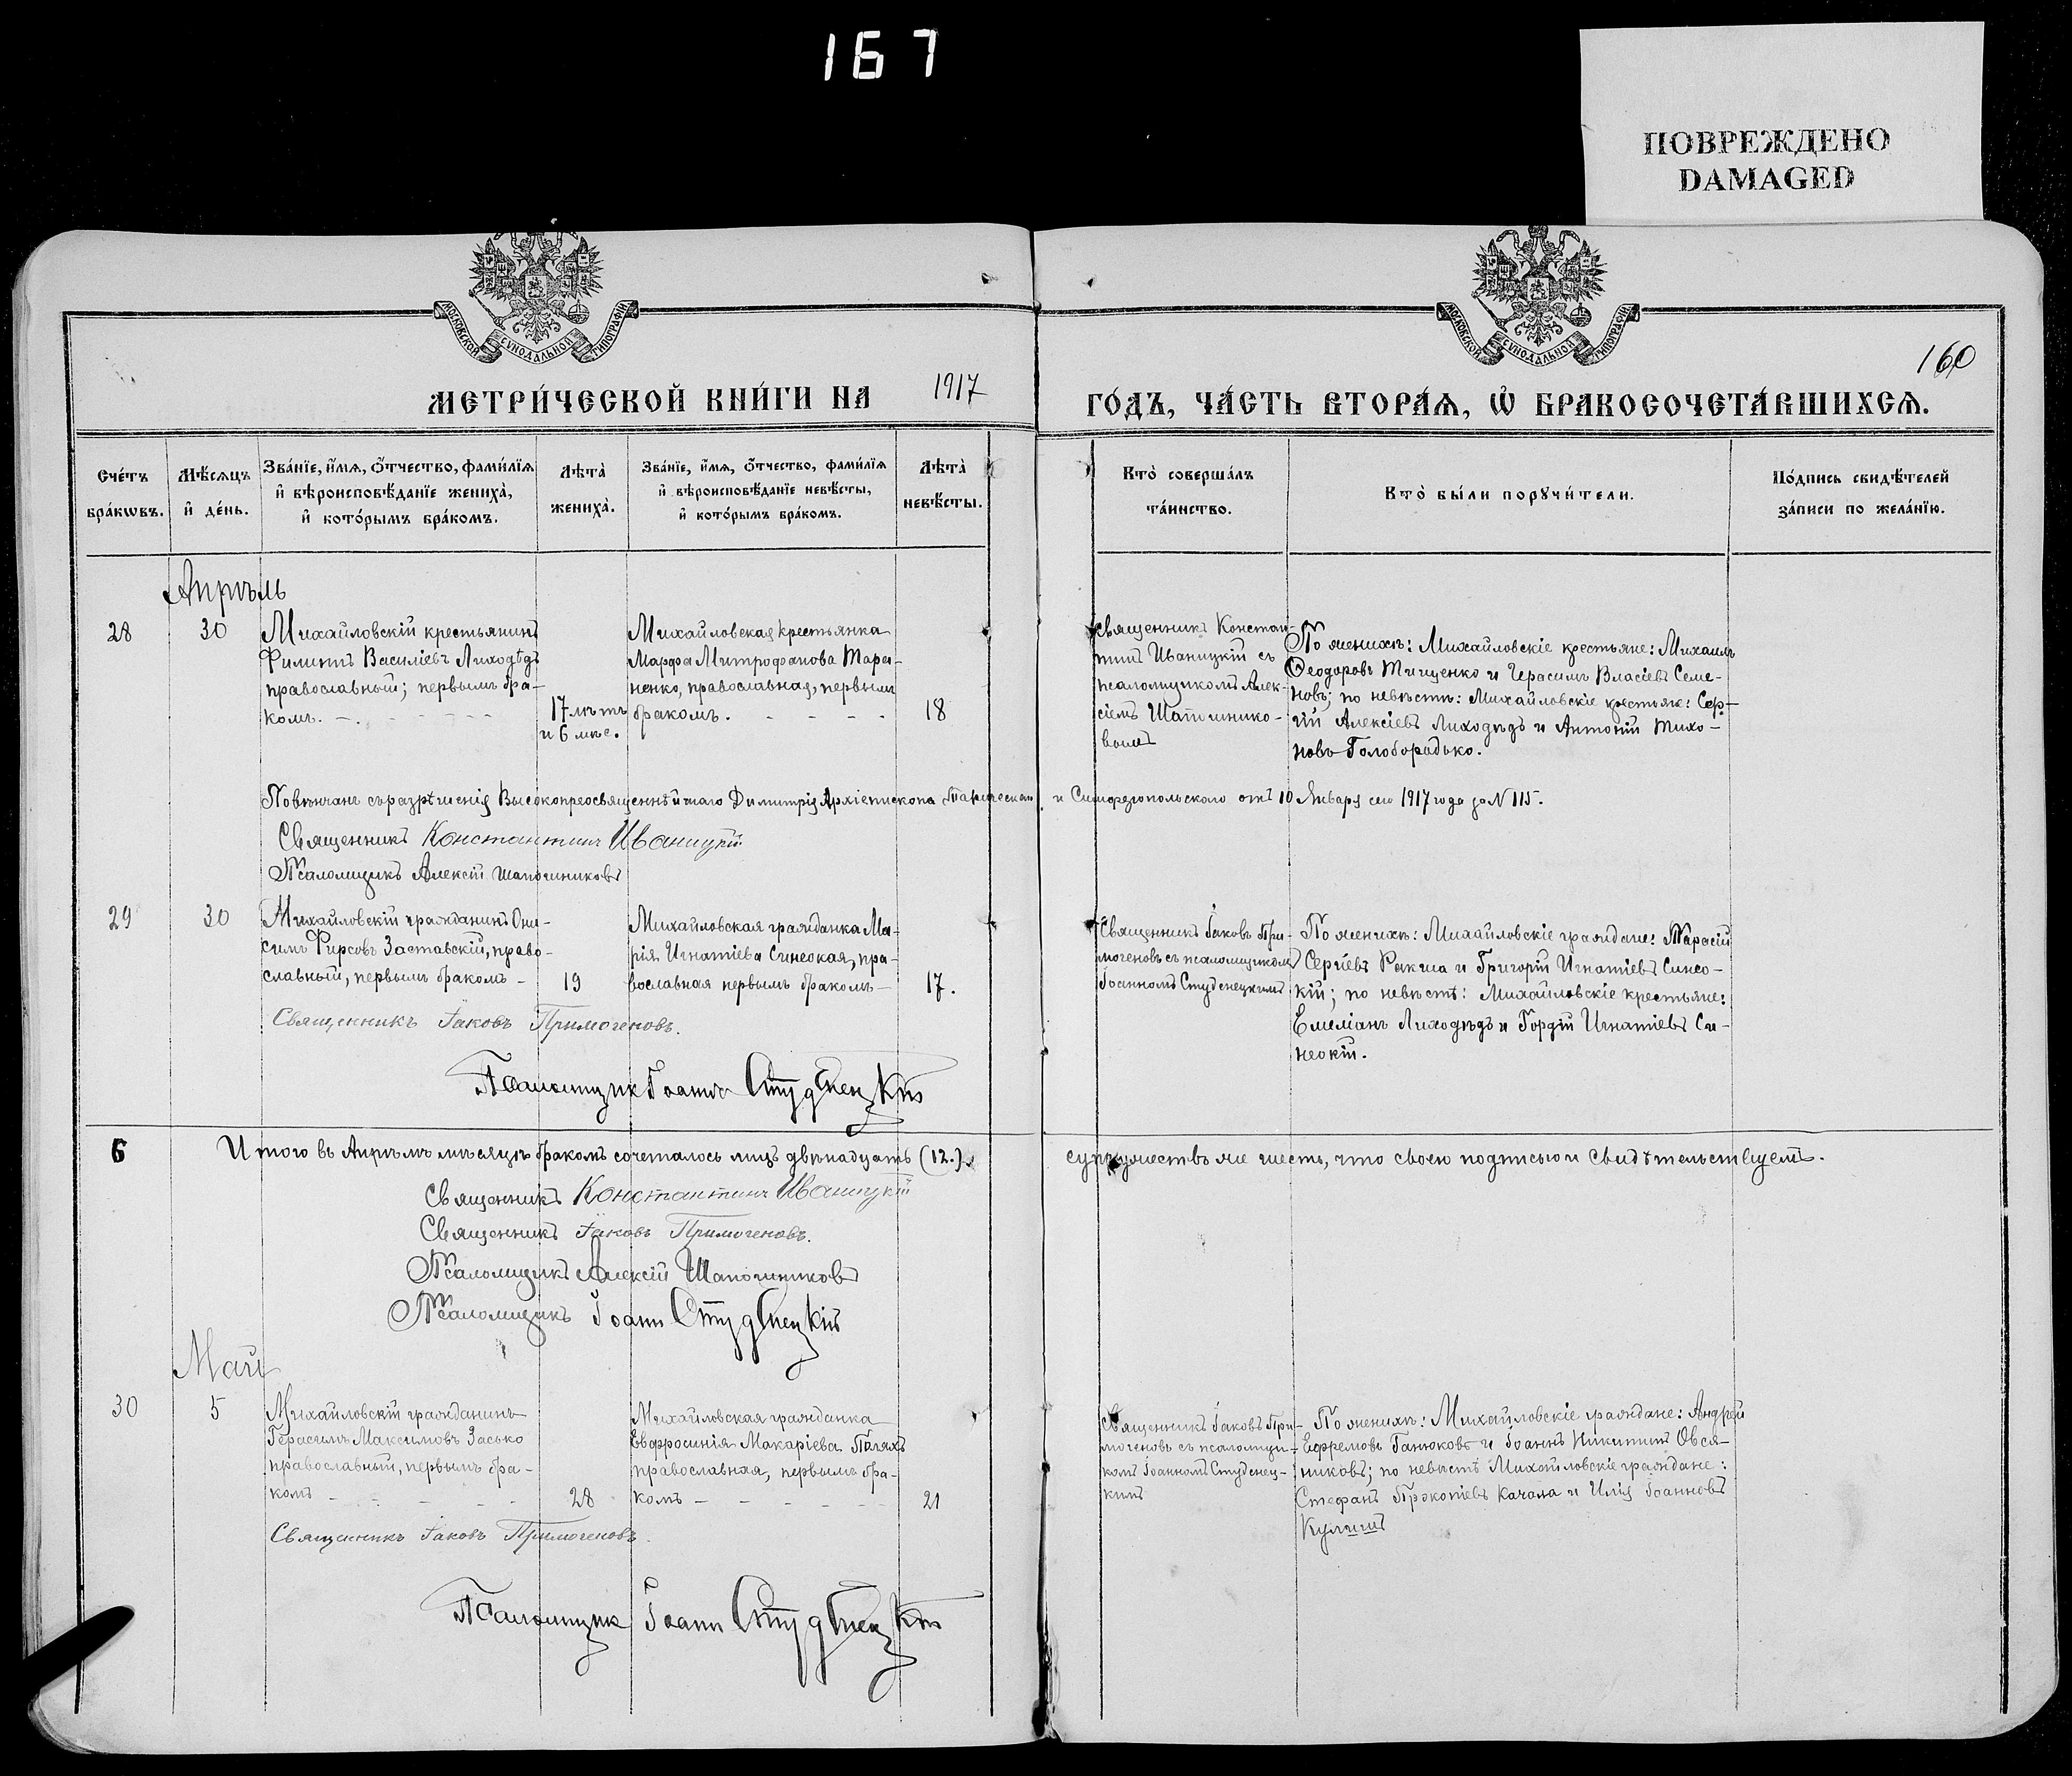 167
ПОВРЕЖДЕНО
DAMAGED
МОСКОВСКОЙ СУНОДАЛЬНОЙ ТИПОГРАФІИ
МОСКОВСКОЙ СУНОДАЛЬНОЙ ТИПОГРАФІИ
160
МЕТРИ́ЧЕСКОЙ КНИ́ГИ НА 1917
ГО́ДЪ, ЧА́СТЬ ВТОРА́Ѧ, Ѡ БРАКОСОЧЕТА́ВШИХСѦ.
Сче́тъ
бра́кѡвъ.
Мѣ́сѧцъ
и҆ де́нь.
Зва́нїе, и҆́мѧ, ѻ҆́тчество, фами́лїѧ
и҆ вѣроисповѣ́данїе жениха̀,
и҆ кото́рымъ бра́комъ.
Лѣта̀
жениха̀.
Зва́нїе, и҆́мѧ, ѻ҆́тчество, фами́лїѧ
и҆ вѣроисповѣ́данїе невѣ́сты,
и҆ кото́рымъ бра́комъ.
Лѣта̀
невѣ́сты.
Кто̀ соверша́лъ
та́инство.
Кто̀ бы́ли порꙋчи́тели.
По́дпись свидѣ́телей
за́писи по жела́нїю.
Апрѣль
28
30
Михайловскій крестьянинъ
Филиппъ Василіевъ Лиходѣдъ
православный; первымъ бра-
комъ. -. - - - - -
17 лѣтъ
и 6 мѣс.
Михайловская крестьянка
Марфа Митрофанова Тара-
ненко, православная, первымъ
бракомъ. - - - -
18
Священникъ Констан-
тинъ Иваницкій съ
псаломщикомъ Алек-
сіемъ Шапошнико-
вымъ
По женихѣ: Михайловскіе крестьяне: Михаилъ
Ѳеодоровъ Тищенко и Герасимъ Власіевъ Семе-
новъ; по невѣстѣ: Михайловскіе крестьяне: Сер-
гій Алексіевъ Лиходѣдъ и Антоній Тихо-
новъ Голобородько.
Повѣнчанъ съ разрѣшенія Высокопреосвященнѣйшаго Димитрія Архіепископа Таврическаго и Симферопольскаго отъ 10 Января сего 1917 года за № 115.
Священникъ Константинъ Иваницкій
Псаломщикъ Алексій Шапошниковъ
29
30
Михайловскій гражданинъ Они-
симъ Фирсовъ Заставскій, право-
славный, первымъ бракомъ -
19
Михайловская гражданка Ма-
рія Игнатіева Синеокая, пра-
вославная первымъ бракомъ -
17.
Священникъ Іаковъ При-
могеновъ съ псаломщикомъ
Іоанномъ Студенецкимъ
По женихѣ: Михайловскіе граждане: Тарасій
Сергіевъ Ракша и Григорій Игнатіевъ Синео-
кій; по невѣстѣ: Михайловскіе крестьяне:
Емеліанъ Лиходѣдъ и Гордій Игнатіевъ Си-
неокій.
Священникъ Іаковъ Примогеновъ.
Псаломщик Іоаннъ Студенецкій
6
Итого въ Апрѣлѣ мѣсяцѣ бракомъ сочеталось лицъ двѣнадцать (12.),
супружествъ же шесть, что своею подписью и свидѣтельствуемъ.
Священникъ Константинъ Иваницкій
Священникъ Іаковъ Примогеновъ.
Псаломщикъ Алексій Шапошниковъ
Псаломщикъ Іоанн Студенецкій
Май
30
5
Михайловскій гражданинъ
Герасимъ Максимовъ Засько
православный, первымъ бра-
комъ - - - - -
28
Михайловская гражданка
Евфросинія Макаріева
православная, первымъ бра-
комъ - - - - - -
21
Священникъ Іаковъ При-
могеновъ съ псаломщи-
комъ Іоанномъ Студенец-
кимъ
По женихѣ: Михайловскіе граждане: Андрей
Ефремовъ Ганюковъ и Іоаннъ Никитинъ Овсян-
никовъ; по невѣстѣ Михайловскіе граждане:
Стефанъ Прокопіевъ Качала и Илія Іоанновъ
Кулишъ
Священникъ Іаковъ Примогеновъ.
Псаломщик Іоанн Студенецкій